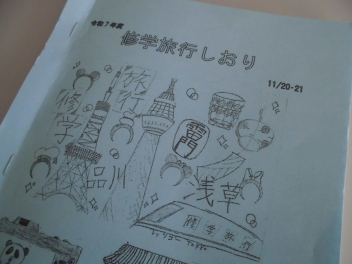 令和7年度
修学旅行しおり
11/20-21
修学
旅行
雷門
品川
浅草
修学旅行